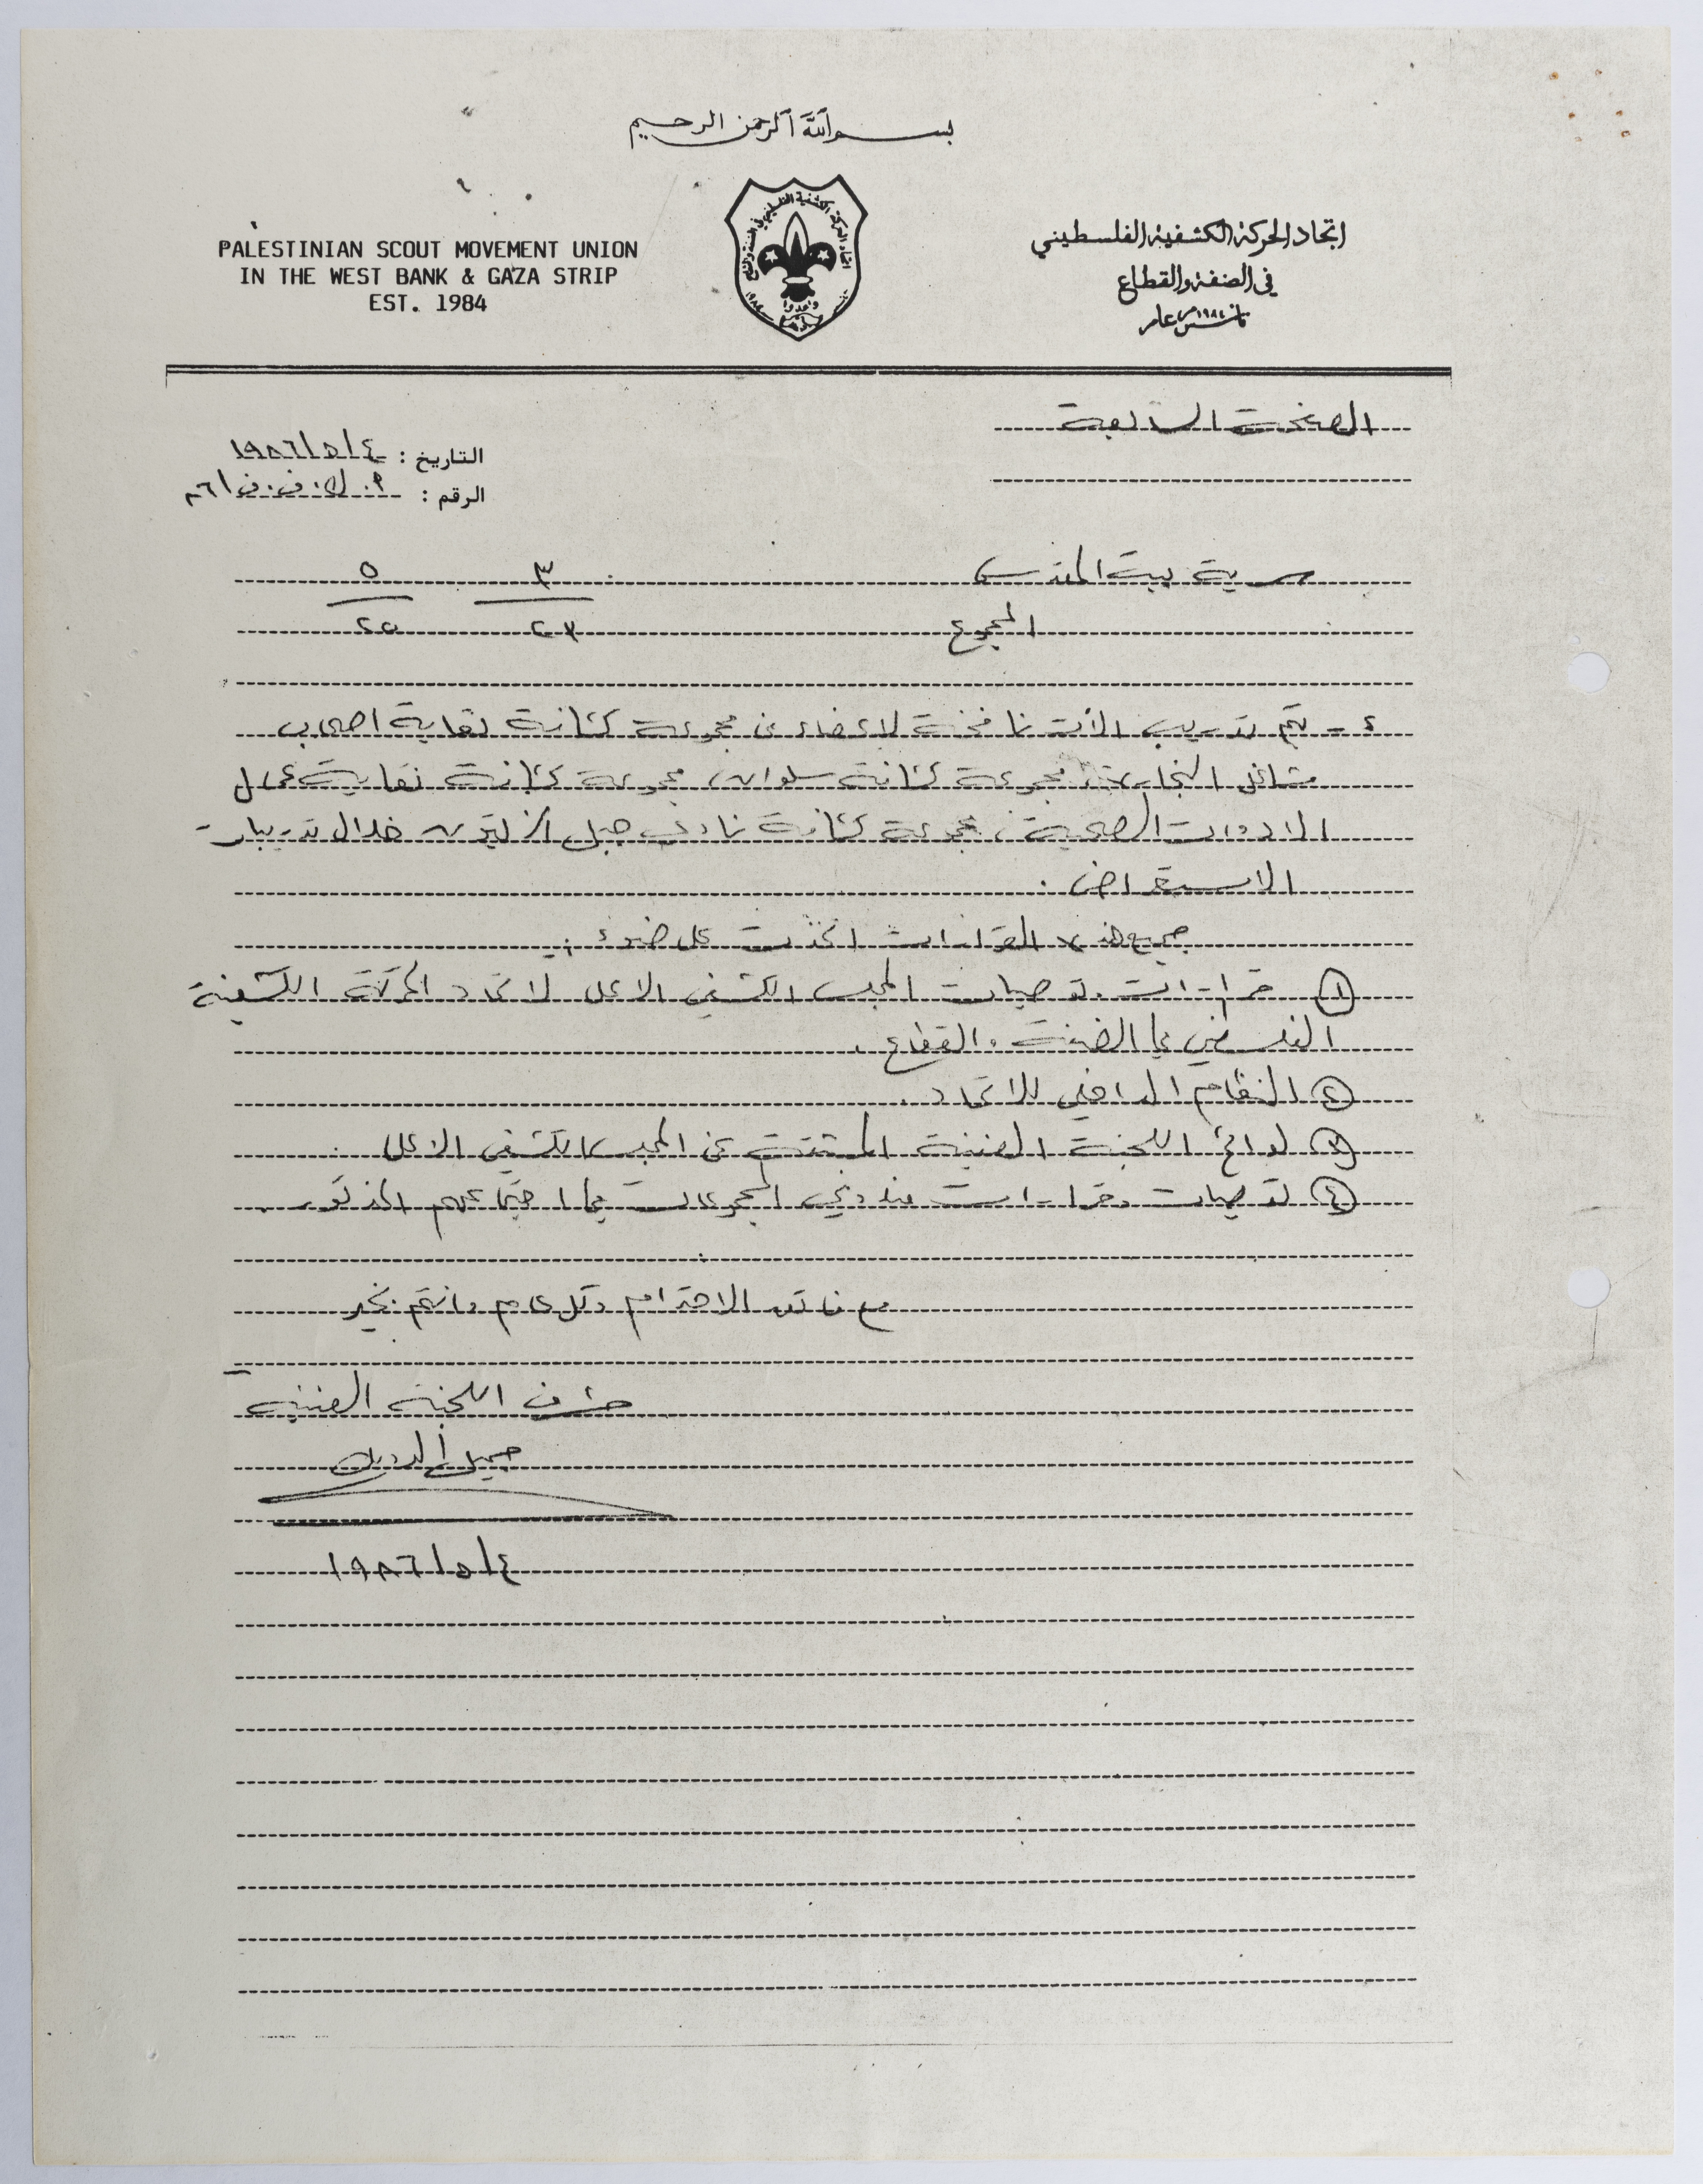 بسم الله الرحمن الرحيم
PALESTINIAN SCOUT MOVEMENT UNION
IN THE WEST BANK & GAZA STRIP
EST. 1984
اتحاد الحركة الكشفية الفلسطيني
في الضفة والقطاع
تأسس عام ١٩٨٤م
الصفحة الرابعة
التاريخ : ٤/٥/١٩٨٦
الرقم :
سرية بيت المقدس ٣ ٥
المجموع
٤ - يتم تدريب لاعضاء من مجموعة كشافة نقابة اصحاب
مشاغل النجارين، مجموعة كشافة سلوان، مجموعة كشافة نقابة عمال
الادوات الصحية، مجموعة كشافة نادي جبل الزيتون خلال تدريبات
الاستعراض .
جميع هذه القرارات اتخذت على ضوء :
① قرارات وتوصيات المجلس الكشفي الاعلى لاتحاد الحركة الكشفية
الفلسطيني في الضفة والقطاع .
② النظام الداخلي للاتحاد .
③ لوائح اللجنة الفنية المنبثقة عن المجلس الكشفي الاعلى .
④ توصيات وقرارات مندوبي المجموعات في اجتماعهم المذكور .
مع فائق الاحترام وكل عام وانتم بخير
مشرف اللجنة الفنية
٤/٥/١٩٨٦